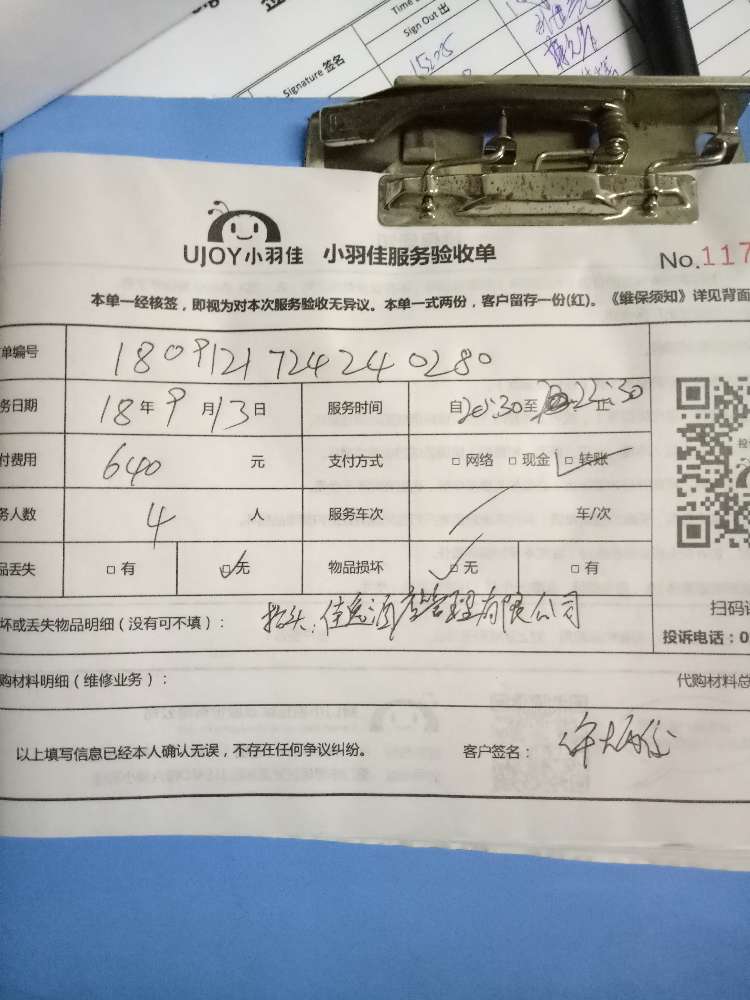 Time
Sign Out 出
Signature 签名
UJOY小羽佳 小羽佳服务验收单
No.117
本单一经核签，即视为对本次服务验收无异议。本单一式两份，客户留存一份(红)。《维保须知》详见背面
单编号 180912172424240280
务日期 18年9月13日 服务时间 自20:30至22:30止
付费用 640元 支付方式 □网络 □现金 □转账
务人数 4人 服务车次 / 车/次
品丢失 □有 □无 物品损坏 □无 □有
坏或丢失物品明细（没有可不填）： 抬头：佳逸酒店管理有限公司
扫码
投诉电话：0
购材料明细（维修业务）： 代购材料总
以上填写信息已经本人确认无误，不存在任何争议纠纷。 客户签名：